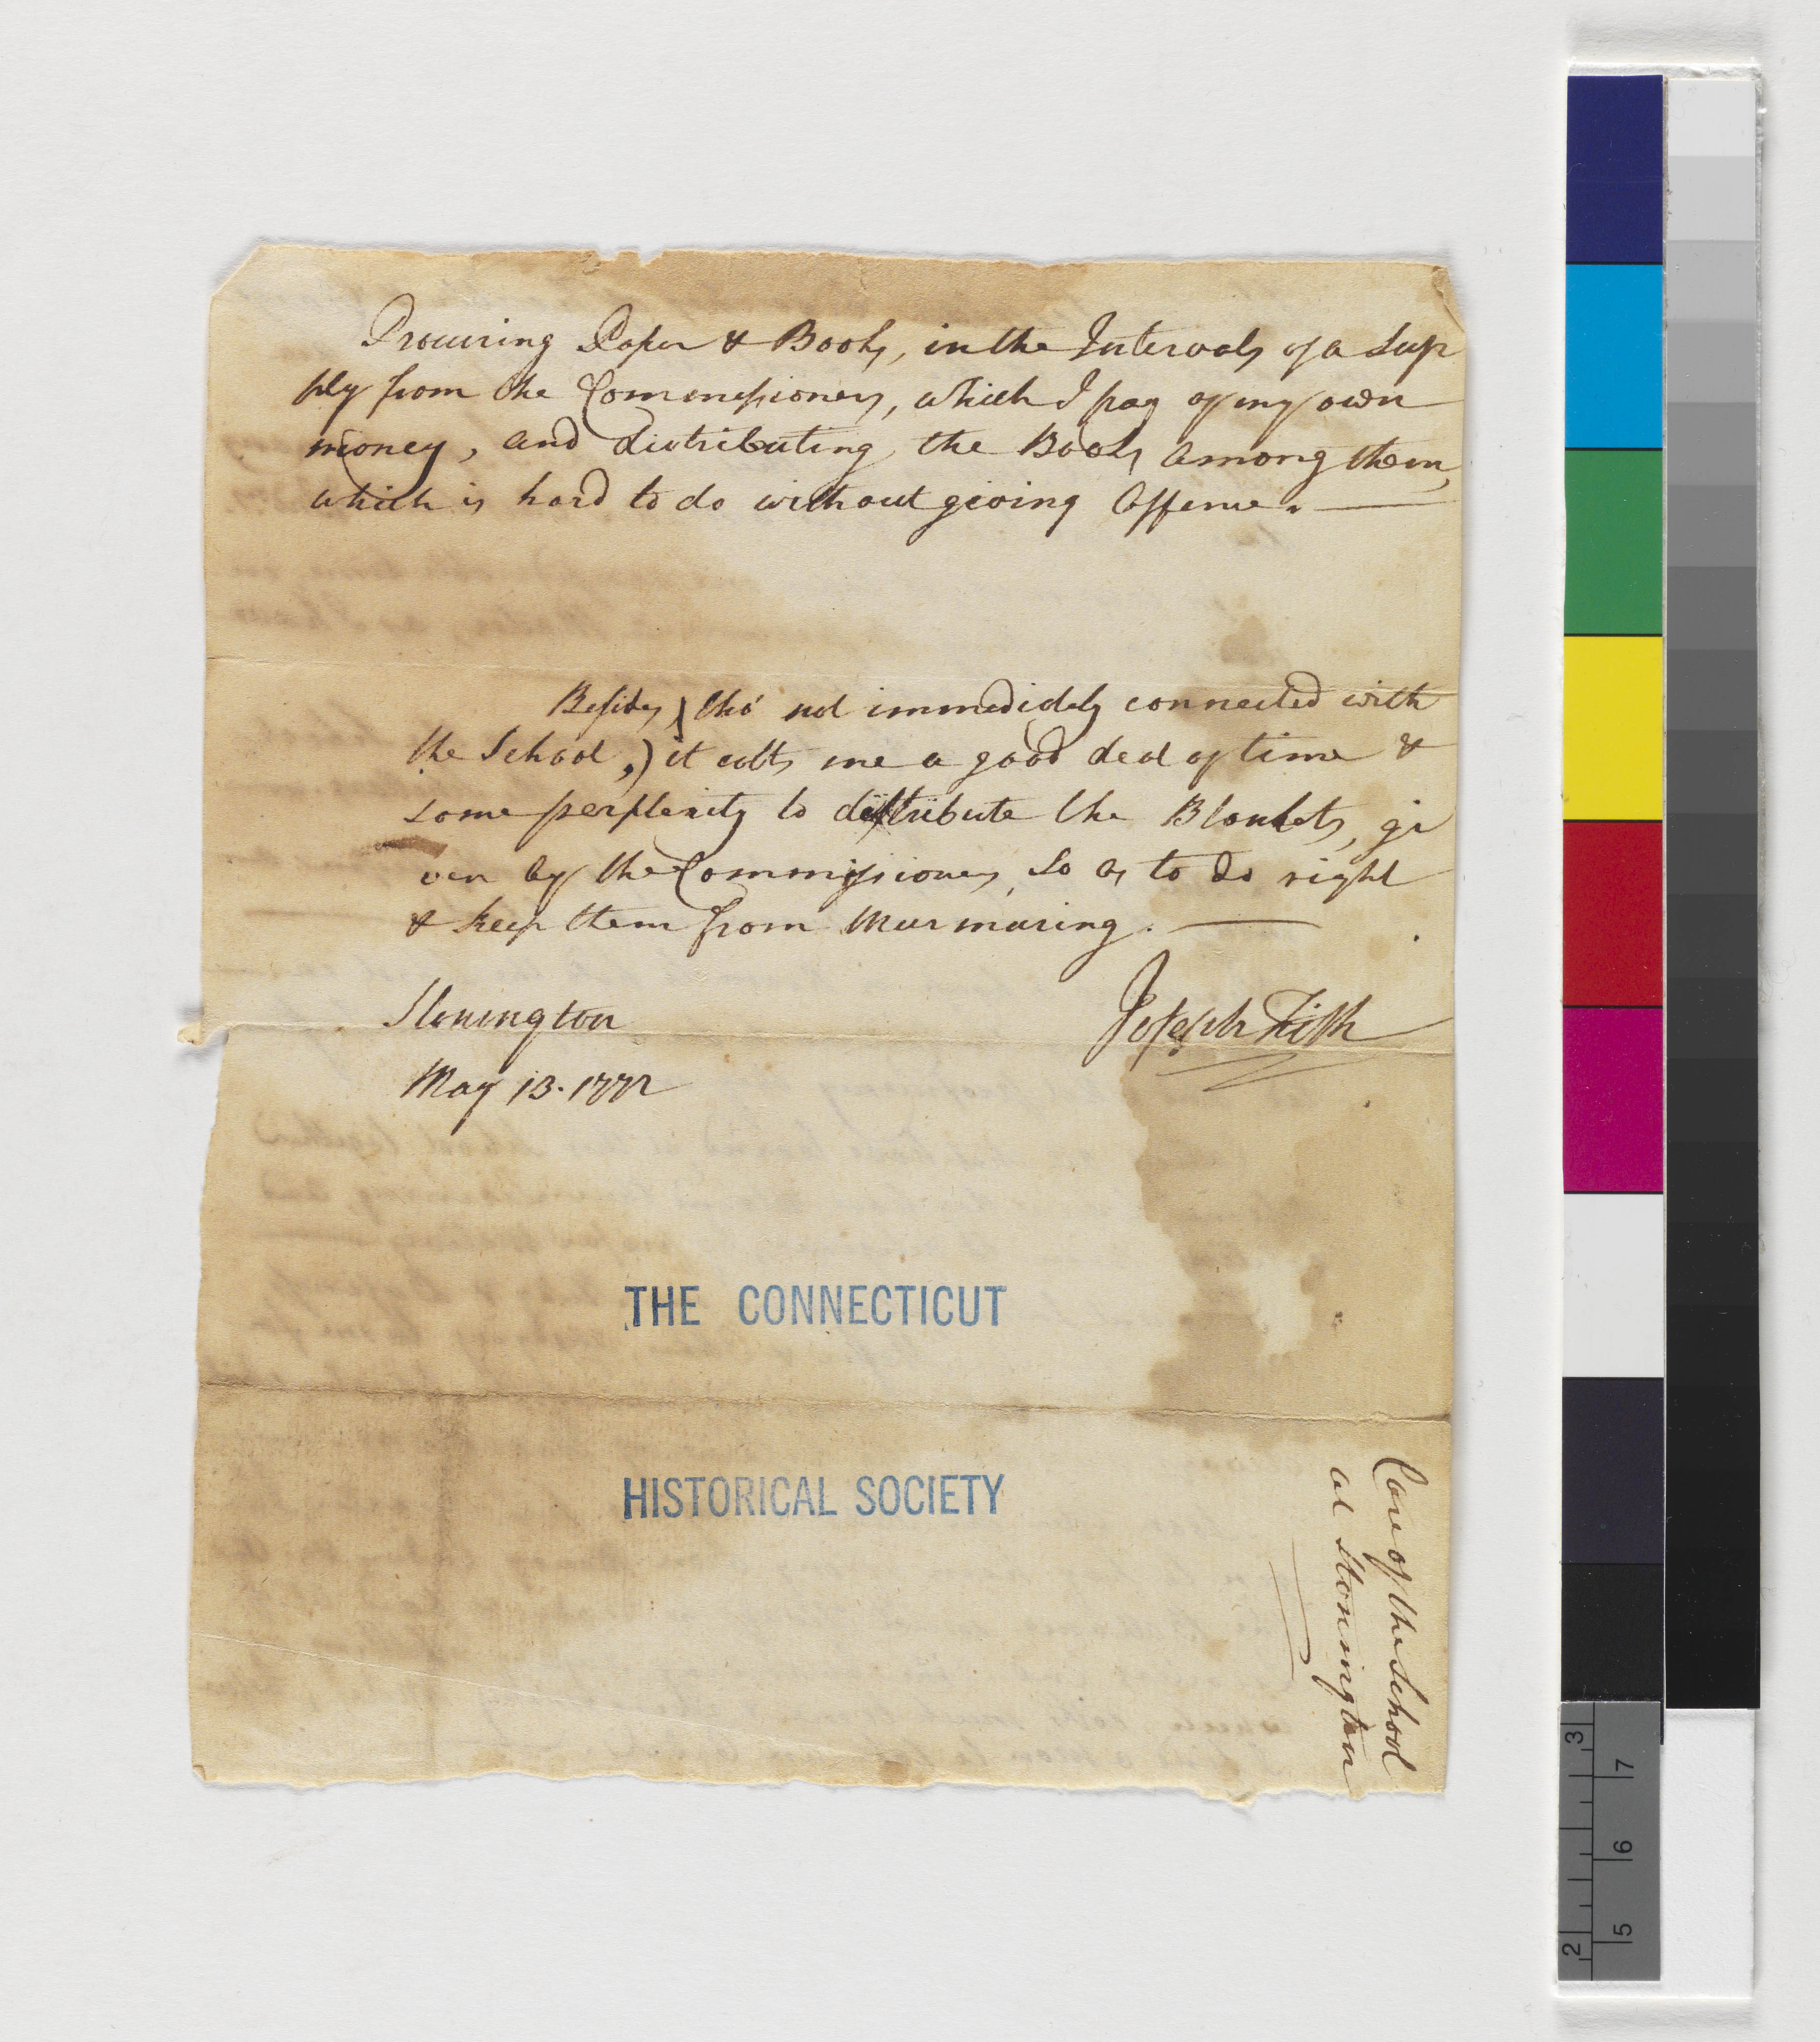 Procuring Paper & Books, in the Intervals of a Sup
ply from the Commissioners, which I pay of my own
money, and distributing the Books among them,
which is hard to do without giving Offence. —
Besides, (tho' not immediately connected with
the School,) it costs me a good deal of time &
some perplexity to distribute the Blankets, gi
ven by the Commissioners, so as to do right
& keep them from Murmuring. —
Stonington
Joseph Fish
May 13. 1772
THE CONNECTICUT
HISTORICAL SOCIETY
Care of the School
at Stonington
3
2
7
6
5